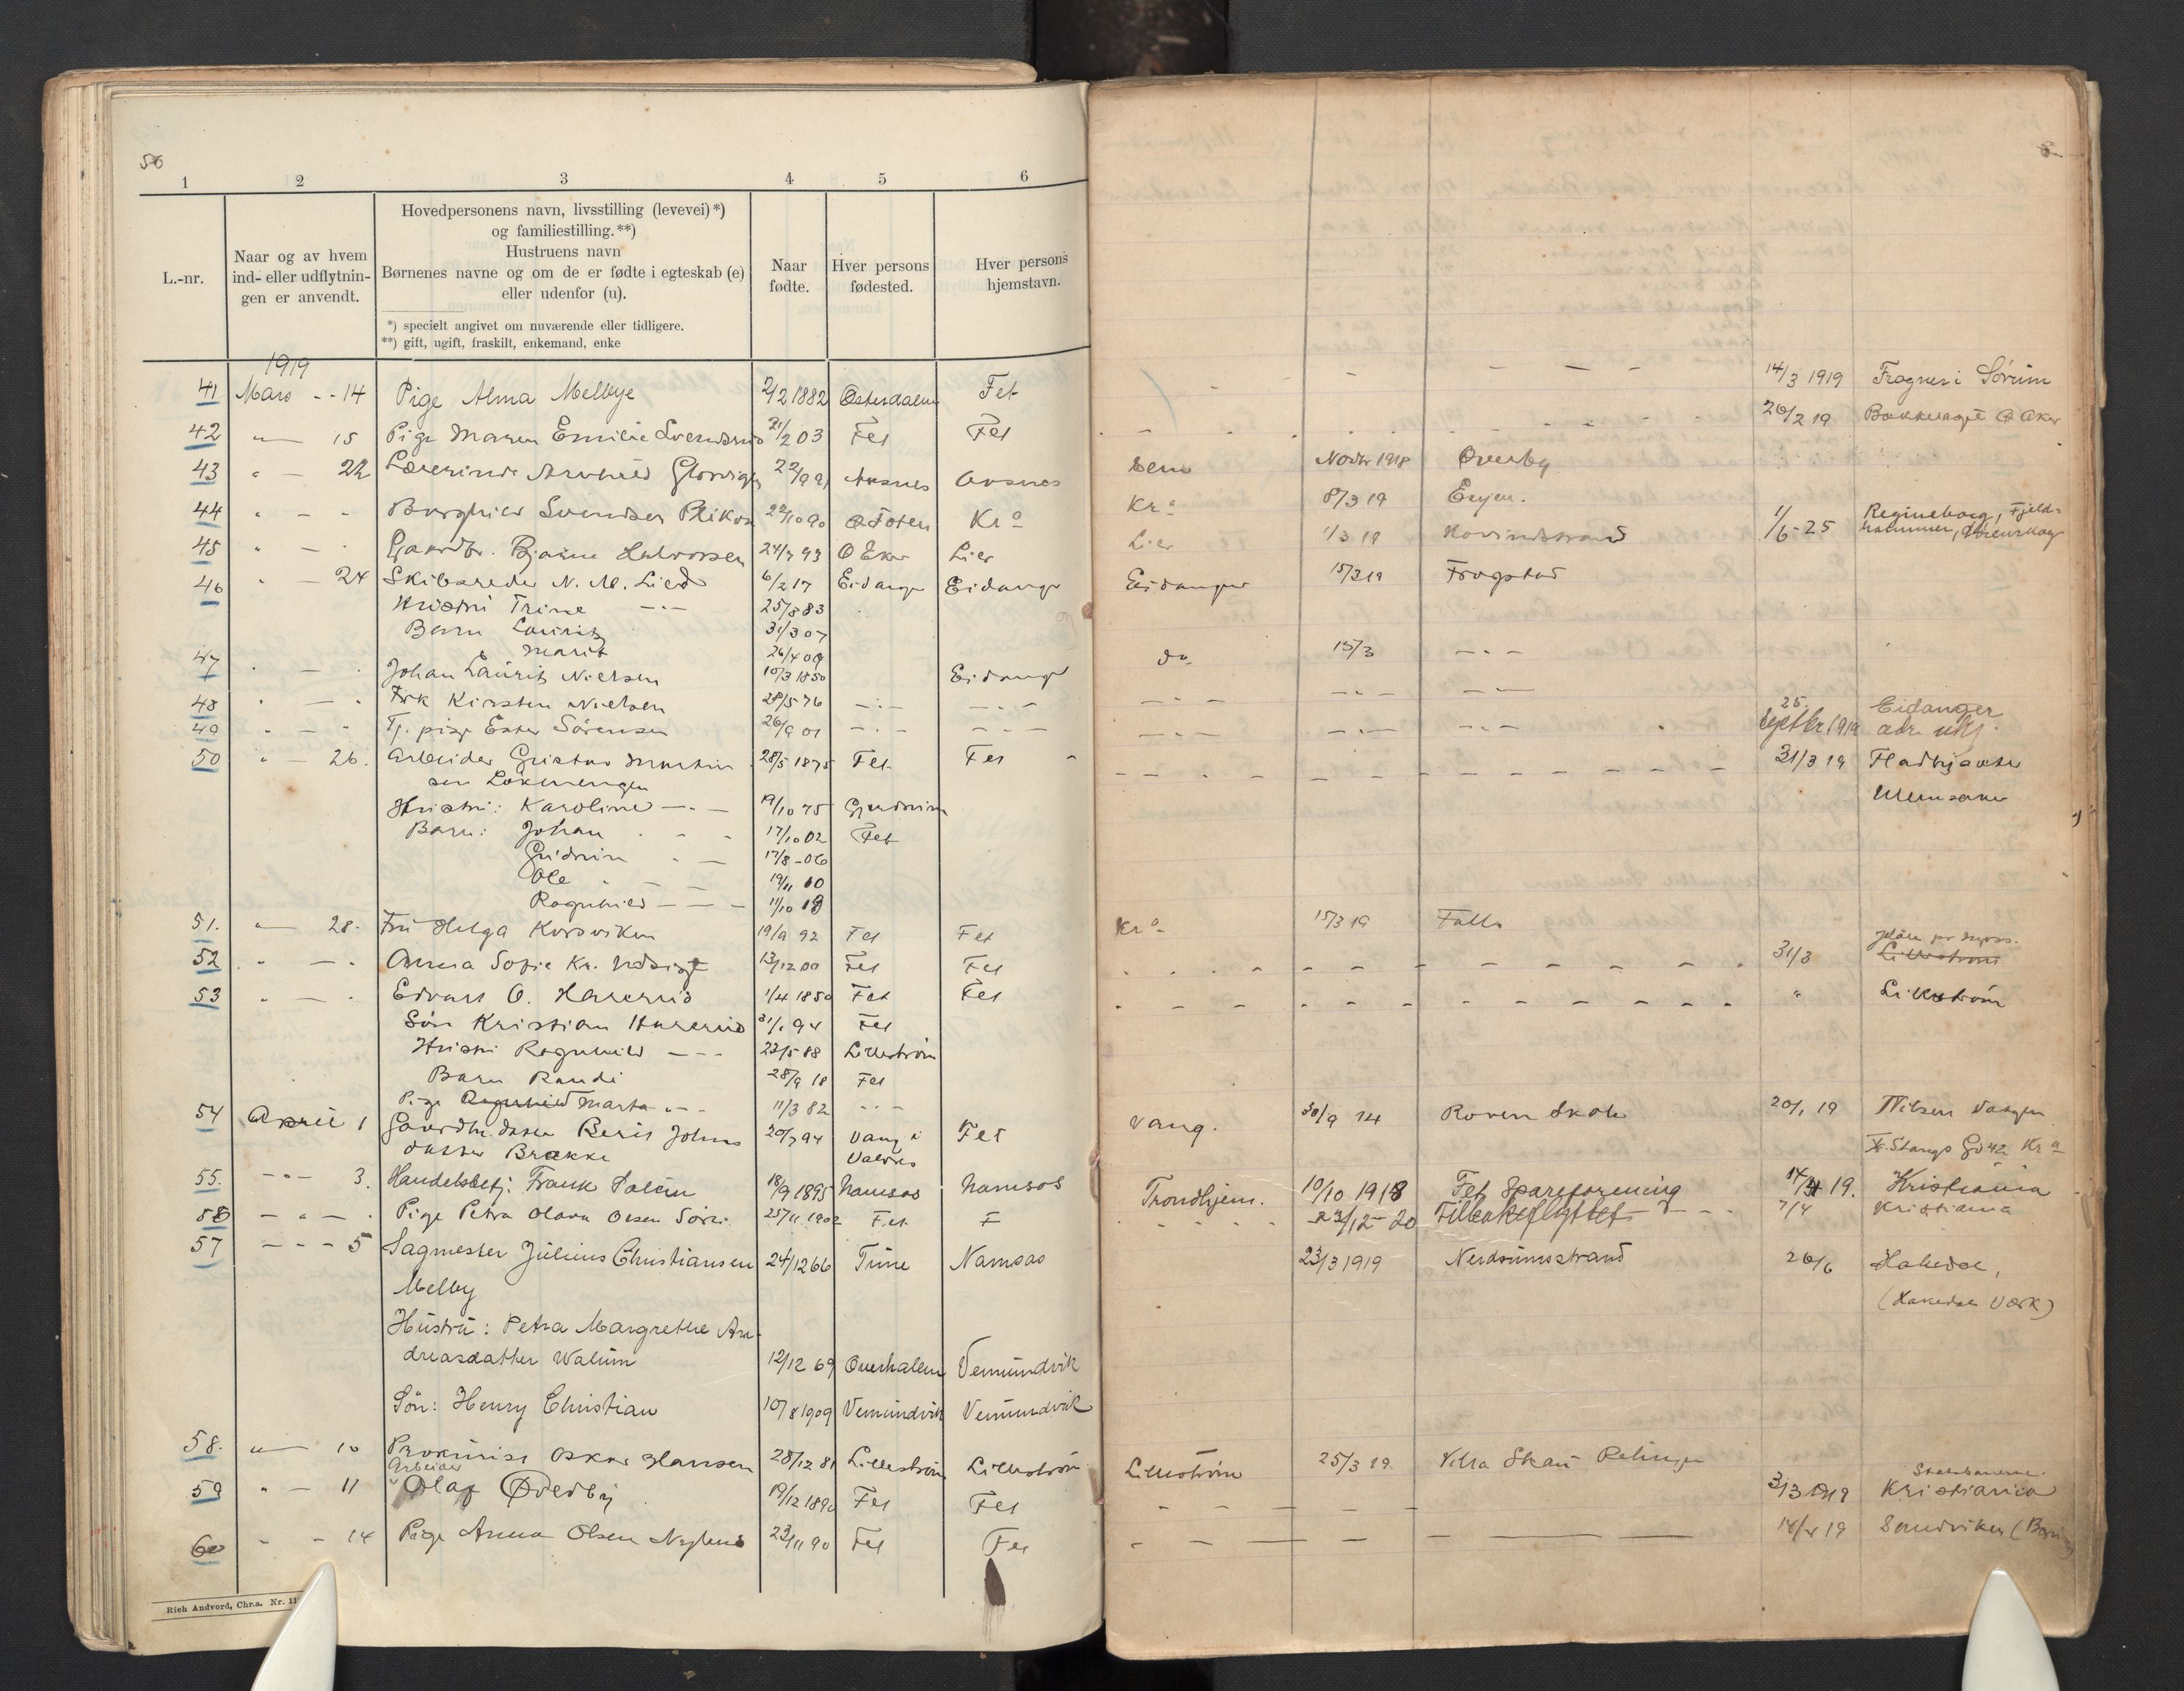 56
1 2 3 4 5 6
L.-nr.
Naar og av hvem
ind- eller udflytnin-
gen er anvendt.
Hovedpersonens navn, livsstilling (levevei)*)
og familiestilling.**)
Hustruens navn
Børnenes navne og om de er fødte i egteskab (e)
eller udenfor (u).
*) specielt angivet om nuværende eller tidligere.
**) gift, ugift, fraskilt, enkemand, enke
Naar
fødte.
Hver persons
fødested.
Hver persons
hjemstavn.
1919
41 Mars - - 14 Pige Alma Melbye 2/2 1882 Østerdalen Fet 14/3 1919 Fragner i Sörum
42 " — 15 Pige Maren Emilie 21/2 03 Fet Fet 26/2 19 Bækkelaget Aker
43 " — 22 Lærerinde 22/9 91 Novbr 1918 Overby
44 " — " Borghild Svendsen 22/10 90 Ø Toten Kr a Kr a 8/3 19
45 " — " Gaardbr. Bjarne Halvorsen 24/7 93 Ø Eker Lier Lier 1/3 19 1/6-25 Regineborg, Fjeld-
hammer,
46 " — 24 Skibsreder N. M. 6/2 17 Eidanger Eidanger Eidanger 15/3 19 Frogstad
Hustru Trine — " — 25/8 83
Barn Lauritz 31/3 07
Marit 26/4 09
47 " — " Johan Lauritz Nielsen 10/3 1850 Eidanger do 15/3 — " —
48 " — " Frk Kirsten Nielsen 28/5 76 — " — — " — — " — — " — — " —
49 " — " Tj. pige Ester Sörensen 26/9 01 — " — — " — — " — — " — — " — 25. Septbr 1919 Eidanger
adr. ukj.
50 " — 26. Arbeider Gustav Martin 28/5 1875 Fet Fet 31/3 19
sen Lökenengen Ullensaker
Hustru: Karoline — " — 19/10 75 Gjerdrum
Barn: Johan 17/10 02 Fet
Gudrun 17/8 - 06
Ole 19/11 10
Ragnhild — — 11/10 18
51. " — 28. Fru Helga Korsviken 19/9 92 Fet Fet Kr a 15/3 19 Falla
52 " — " Anna Sofie Kr. 13/12 00 Fet Fet 31/3 Lilleström
53 " — " Edvart O. Hareruid 1/4 1850 Fet Fet " Lilleström
Sön Kristian Hareruid 31/1 94 Fet
Hustru Ragnhild — " — 22/5 88 Lilleström
Barn Randi 28/9 18 Fet
Pige Ragnhild Marta - " - 11/3 82 - " -
54 April 1 Gaardbr. datter Berit Johns 20/7 94 Vang i Fet Vang. 30/9 14 Roven Skole 20/1 19
datter Brakke Valdres Stangs Gd 42 Kr a
55. - " - 3. Handelsbetj: Frank Salein 18/9 1895 Namsos Namsos Trondhjem. 10/10 1918 Fet Spareforening 14/4 19. Kristiania
56 — " — " Pige Petra Olava Olsen 25/11 1902 Fet F 23/12-20 Tilbakeflyttet 7/4 Kristiania
57 — " - 5 Sagmester Julius Christiansen 24/12 66 Tune Namsos 23/3 1919 Nerdrumsstrand 26/6 Hakedal,
Melby (Hakedals Værk)
Hustru: Petra Margrethe An-
dreasdatter Walum 12/12 69 Overhalden Vemundvik
Sön: Henry Christian 10/8 1909 Vemundvik Vemundvik
58. " — 10 Prokurist Oskar Hansen 28/12 81 Lilleström Lilleström Lilleström 25/3 19 Villa Skau
59 " — 11 Arbeider Olaf Överby 19/12 1890 Fet Fet 3/3 1919 Statsbanerne.
Kristiania
60 " - 14 Pige Anna Olsen Nylend 23/11 90 Fet Fet 14/4 19 Sandviken
Rich Andvord, Chr.a. Nr. 11